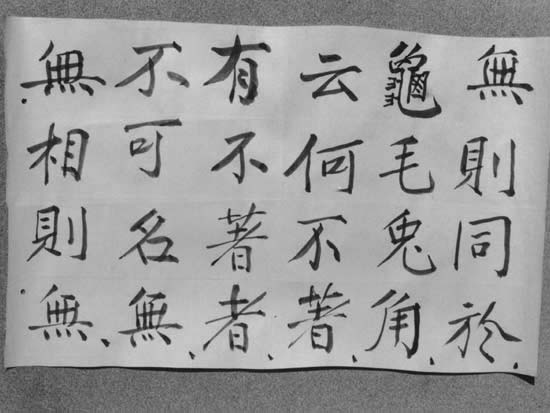 無則同於
龜毛兔角
云何不著
有不著者
不可名無
無相則無